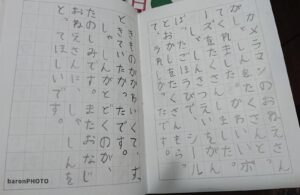 カメラマンのおねえさん
が、しゃしんをたくさんとっ
てくれました。かわいいポ
ーズをたくさんしました。
しゃしんさつえい、がん
ばったごほうびで、シール
とおかしをたくさんもら
きものがかわいくて、ずっ
ときていたかったです。
しゃしんがとどくのが、
たのしみです。またおなじ
おねえさんに、しゃしんを
とってほしいです。
baronPHOTO